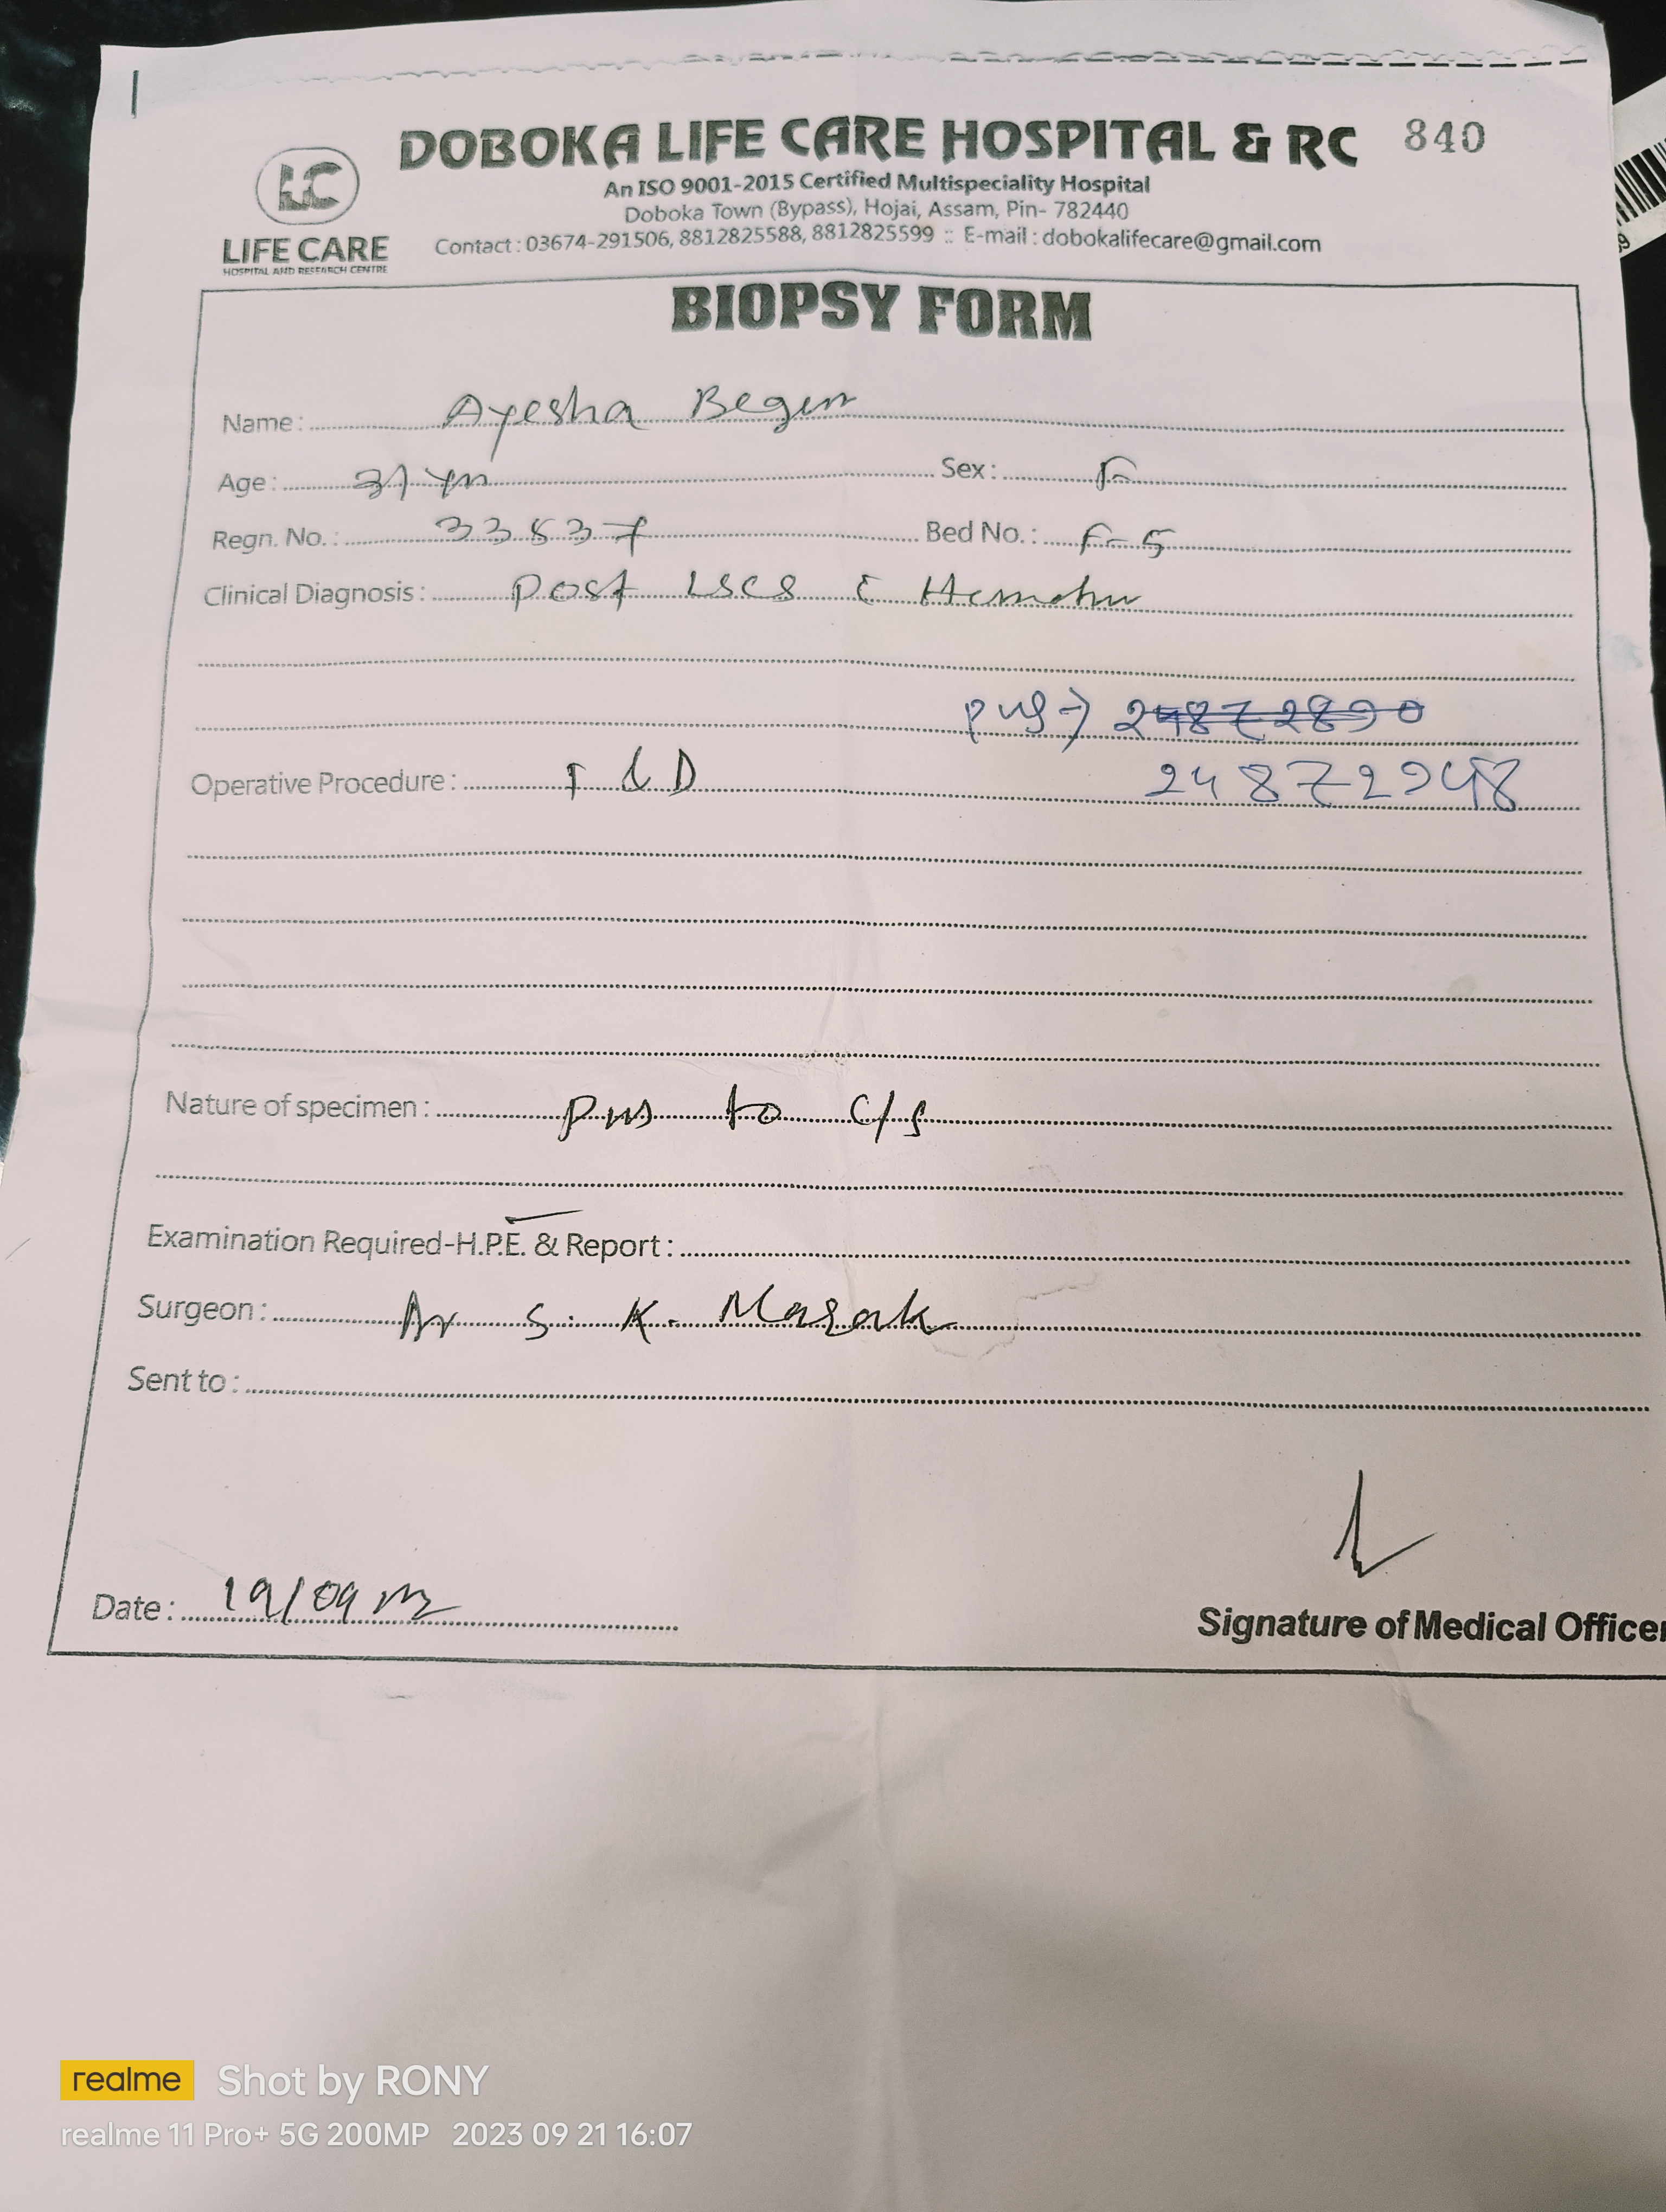 DOBOKA LIFE CARE HOSPITAL & RC 840
An ISO 9001-2015 Certified Multispeciality Hospital
Doboka Town (Bypass), Hojai, Assam, Pin- 782440
Contact : 03674-291506, 8812825588, 8812825599 :: E-mail : dobokalifecare@gmail.com
LC
LIFE CARE
HOSPITAL AND RESEARCH CENTRE
BIOPSY FORM
Name : Ayesha Begum
Age : 31 yrs Sex : F
Regn. No. : 33837 Bed No. : F-5
Clinical Diagnosis : Post LSCS c
pus → 24872890
Operative Procedure : I & D 24872948
Nature of specimen : pus to c/s
Examination Required-H.P.E. & Report :
Surgeon : Dr S. K. Masak
Sent to :
Date : 19/09
Signature of Medical Officer
realme Shot by RONY
realme 11 Pro+ 5G 200MP 2023 09 21 16:07